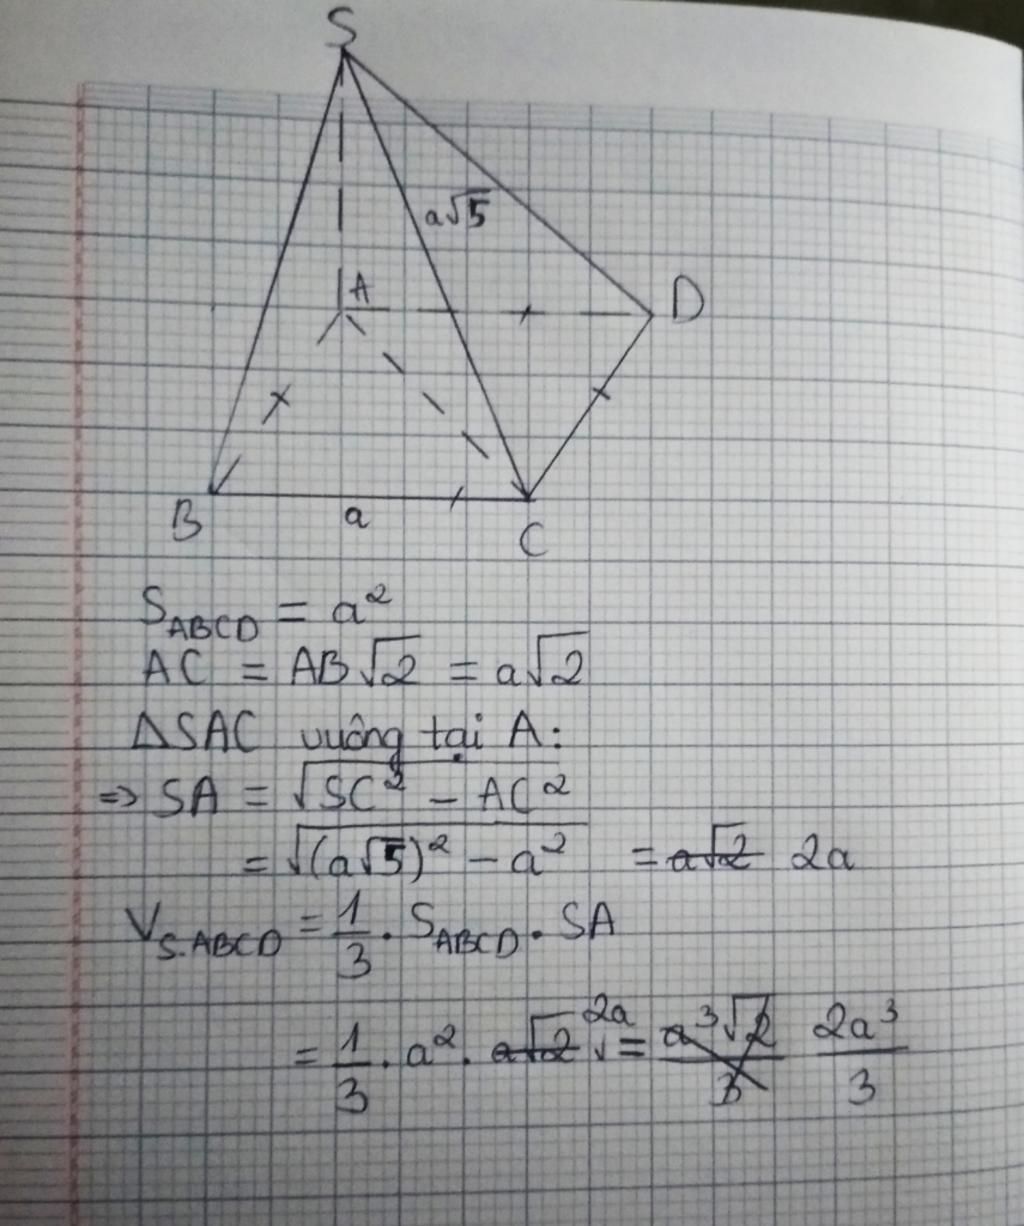 S
a√5
A
D
B
a
C
S_ABCD = a²
AC = AB√2 = a√2
ΔSAC vuông tại A:
=> SA = √(SC² - AC²)
= √((a√5)² - a²) = a√2 2a
V_S.ABCD = 1/3 . S_ABCD . SA
= 1/3 . a² . a√2 2a = a³√2/3 2a³/3